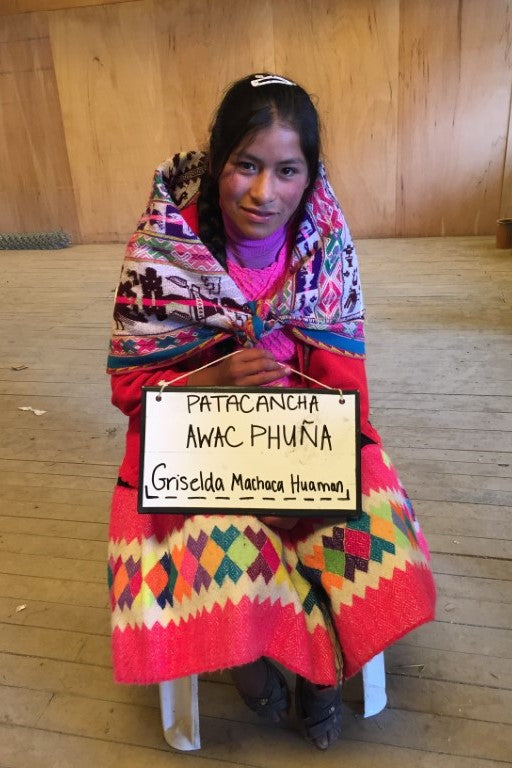 PATACANCHA
AWAC PHUÑA
Griselda Machaca Huaman